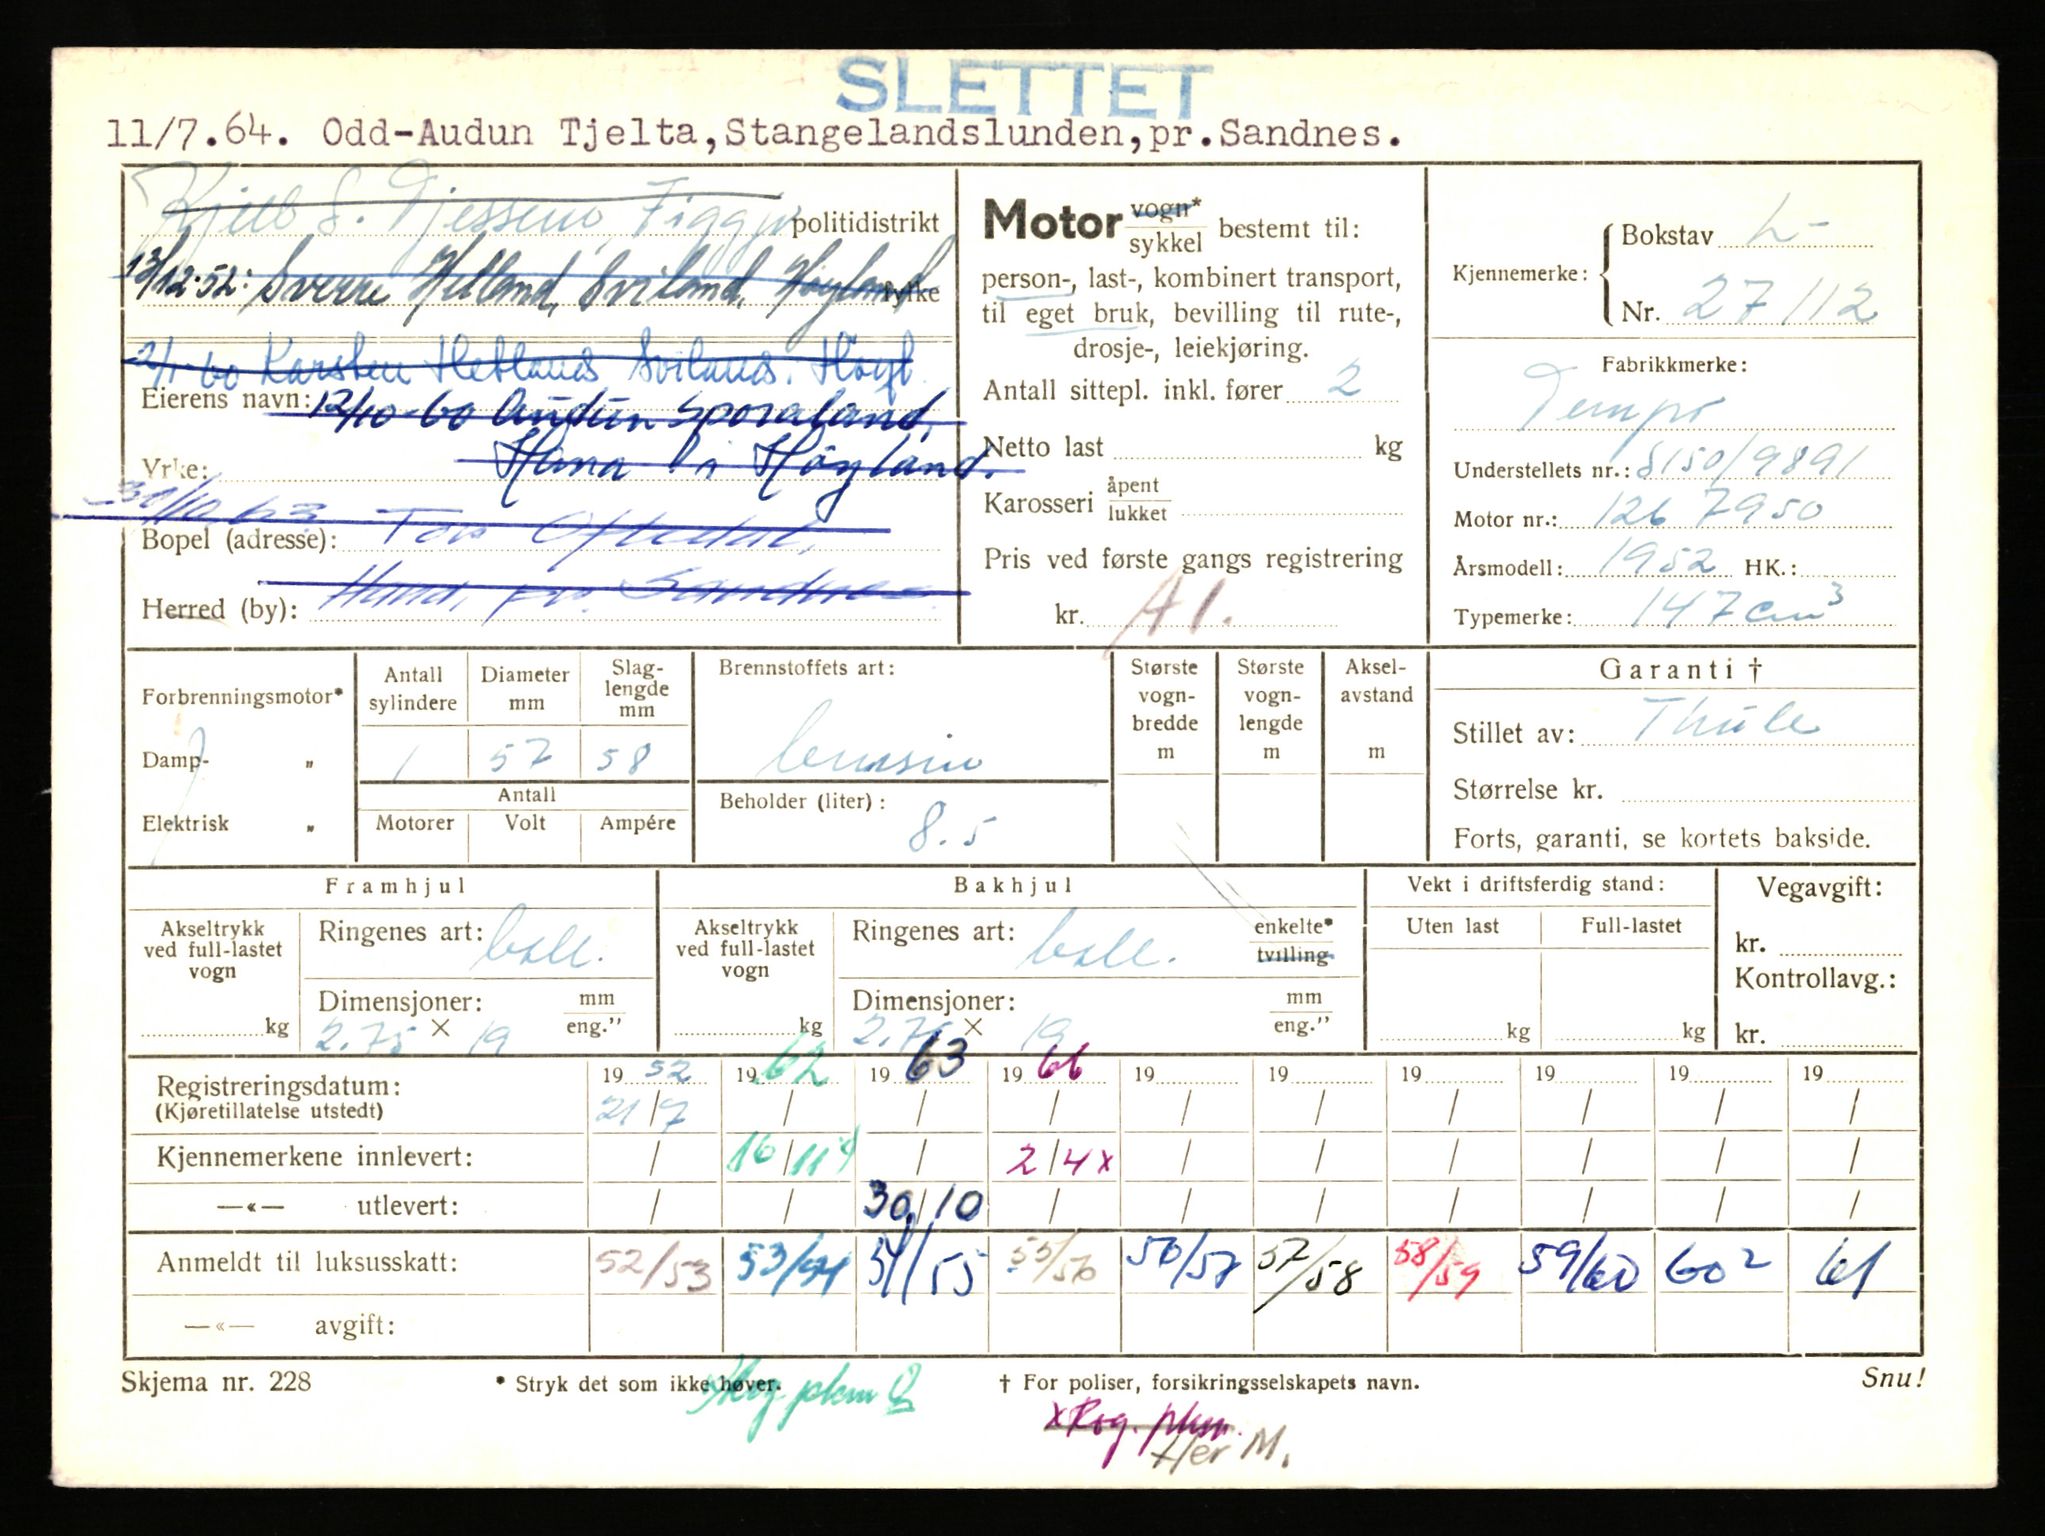 SLETTET
11/7.64. Odd-Audun Tjelta,Stangelandslunden,pr.Sandnes.
politidistrikt
13/12-52: Sverre Hetland, Sviland, Høyland
fylke
2/1-60 Karsten Hetland Sviland. Høyl.
Eierens navn: 12/10-60 Audun Sporaland,
Yrke: Hana i Høyland.
31/10 63 Tor Oftedal,
Bopel (adresse):
Herred (by): Hana, pr. Sandnes.
Motor vogn* sykkel bestemt til:
person-, last-, kombinert transport,
til eget bruk, bevilling til rute-,
drosje-, leiekjøring.
Antall sittepl. inkl. fører 2
Netto last kg
Karosseri åpent lukket
Pris ved første gangs registrering
kr. A1.
Kjennemerke: Bokstav L-
Nr. 27112
Fabrikkmerke:
Tempo
Understellets nr.: S150/9891
Motor nr.: 126 7950
Årsmodell: 1952 HK.:
Typemerke: 147 cm3
Forbrenningsmotor*
Damp- „
Elektrisk „
Antall sylindere
Diameter mm
Slag-lengde mm
1 57 58
Antall
Motorer Volt Ampére
Brennstoffets art:
bensin
Beholder (liter):
8.5
Største vogn-bredde m
Største vogn-lengde m
Aksel-avstand m
Garanti †
Stillet av: Thule
Størrelse kr.
Forts, garanti, se kortets bakside.
Framhjul
Akseltrykk ved full-lastet vogn
kg
Ringenes art: ball.
Dimensjoner: mm eng."
2.75 × 19
Bakhjul
Akseltrykk ved full-lastet vogn
kg
Ringenes art: ball. enkelte* tvilling
Dimensjoner: mm eng."
2.75 × 19
Vekt i driftsferdig stand:
Uten last Full-lastet
kg kg
Vegavgift:
kr.
Kontrollavg.:
kr.
Registreringsdatum: 19 52 19 62 19 63 19 66 19 19 19 19 19 19
(Kjøretillatelse utstedt) 21/7 / / / / / / / / /
Kjennemerkene innlevert: / 16/11 / 2/4 x / / / / / /
—«— utlevert: / / 30/10 / / / / / / /
Anmeldt til luksusskatt: 52/53 53/54 54/55 55/56 56/57 57/58 58/59 59/60 60 2 61
—«— avgift:
Skjema nr. 228 * Stryk det som ikke høver. † For poliser, forsikringsselskapets navn. Snu!
x Rog. pkm.
Her M.